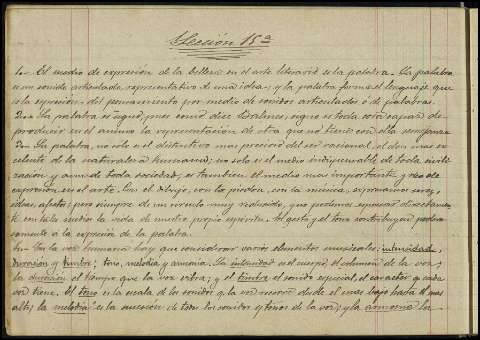 Sección 15ª
1.- El medio de expresión de la belleza en el arte literario es la palabra. La palabra
es un sonido articulado, representativo de una idea; y la palabra forma el lenguaje que
es la expresión del pensamiento por medio de sonidos articulados ó de palabras.
2.- La palabra es signo, pues como dice Balmes, signo es toda cosa capaz de
producir en el ánimo la representación de otra que no tiene con ella semejanza
3.- La palabra, no solo es el distintivo mas precioso del ser racional, el don mas ex
celente de la naturaleza humana; no solo es el medio indispensable de toda civili
zación y aun de toda sociedad, es tambien el medio mas importante y rico de
expresión en el arte. Con el dibujo, con la piedra, con la música, expresamos seres,
ideas, afectos; pero siempre de un círculo muy reducido, que podemos expresar directamen
te con tales medios la vida de nuestro propio espíritu. El gesto y el tono contribuyen podero
samente a la expresión de la palabra.
4.- En la voz humana hay que considerar varios elementos musicales, intensidad,
duración y timbre; tono, melodía y armonía. La intensidad es el cuerpo, el volumen de la voz;
la duración el tiempo que la voz vibra, y el timbre el sonido especial, el caracter q. cada
voz tiene. El tono es la escala de los sonidos q. la voz recorre desde el mas bajo hasta el mas
alto; la melodía es la sucesión de todos los sonidos y tonos de la voz; y la armonía la